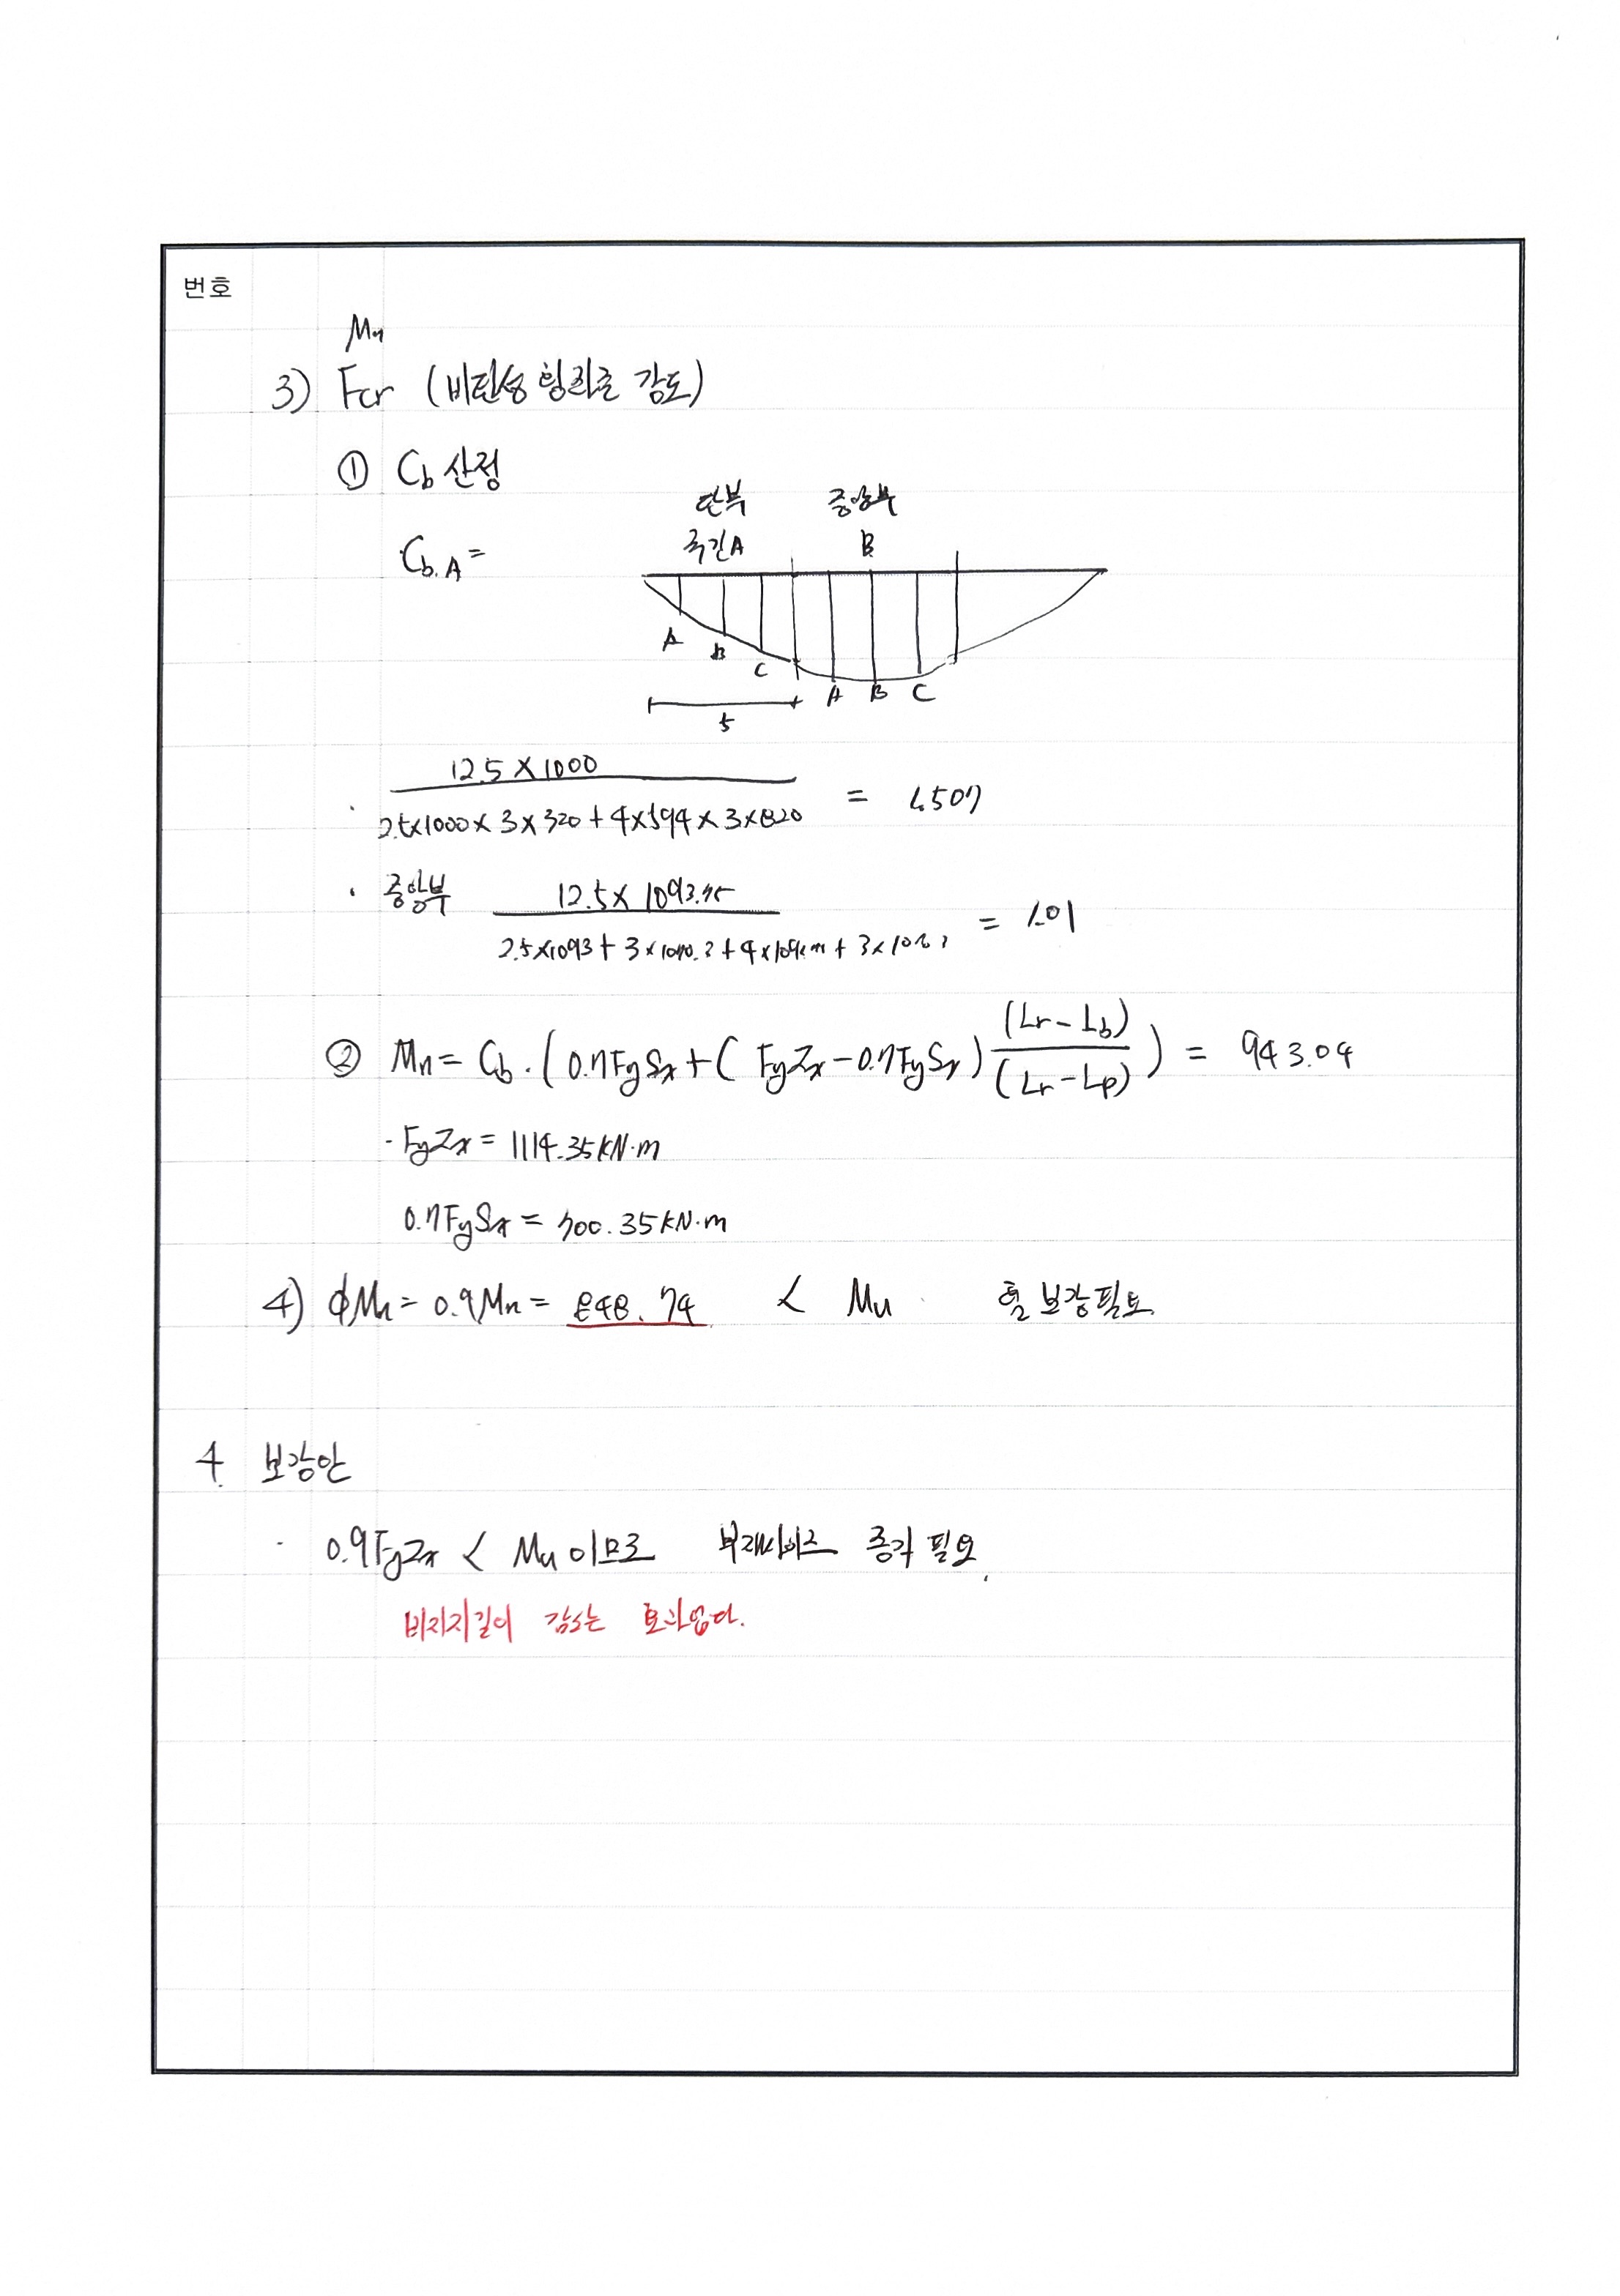 번호
Mn
3) Fcr (비탄성 휨좌굴 강도)
① Cb 산정
단부 중앙부
Cb.A = 구간A B
A B C A B C
5
· 12.5×1000 / 2.5×1000 × 3×320 + 4×594 × 3×820 = 1.507
· 중앙부 12.5×1093.75 / 2.5×1093 + 3× + 4× + 3× = 1.01
② Mn = Cb·(0.7FySx + (FyZx - 0.7FySx) (Lr - Lb) / (Lr - Lp)) = 943.04
- FyZx = 1114.35kN·m
0.7FySx = 700.35kN·m
4) ϕMn = 0.9Mn = 848.74 < Mu 휨 보강필요.
4. 보강안
· 0.9FyZx < Mu 이므로 부재사이즈 증가 필요.
비지지길이 감소는 효과없다.